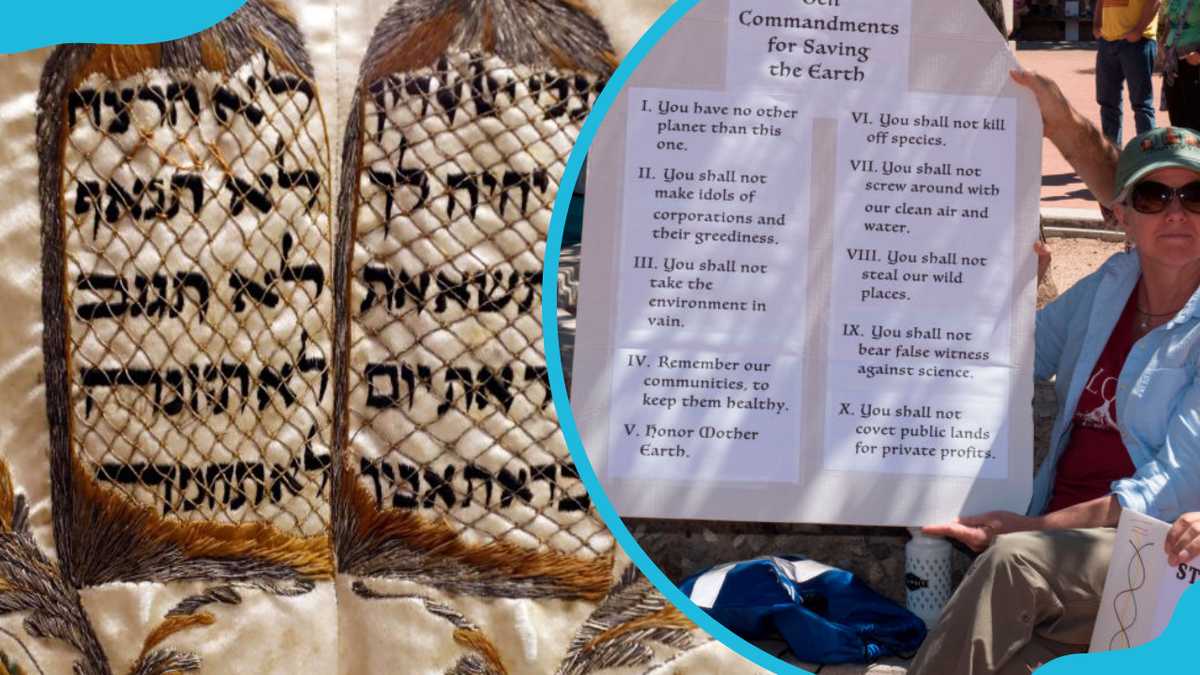 יהיה לך
תשא את
את יום
את אביך
לא תרצח
לא תנאף
לא תגנב
לא תענה
לא תחמוד
Ten
Commandments
for Saving
the Earth
I. You have no other
planet than this
one.
II. You shall not
make idols of
corporations and
their greediness.
III. You shall not
take the
environment in
vain.
IV. Remember our
communities, to
keep them healthy.
V. Honor Mother
Earth.
VI. You shall not kill
off species.
VII. You shall not
screw around with
our clean air and
water.
VIII. You shall not
steal our wild
places.
IX. You shall not
bear false witness
against science.
X. You shall not
covet public lands
for private profits.
ST